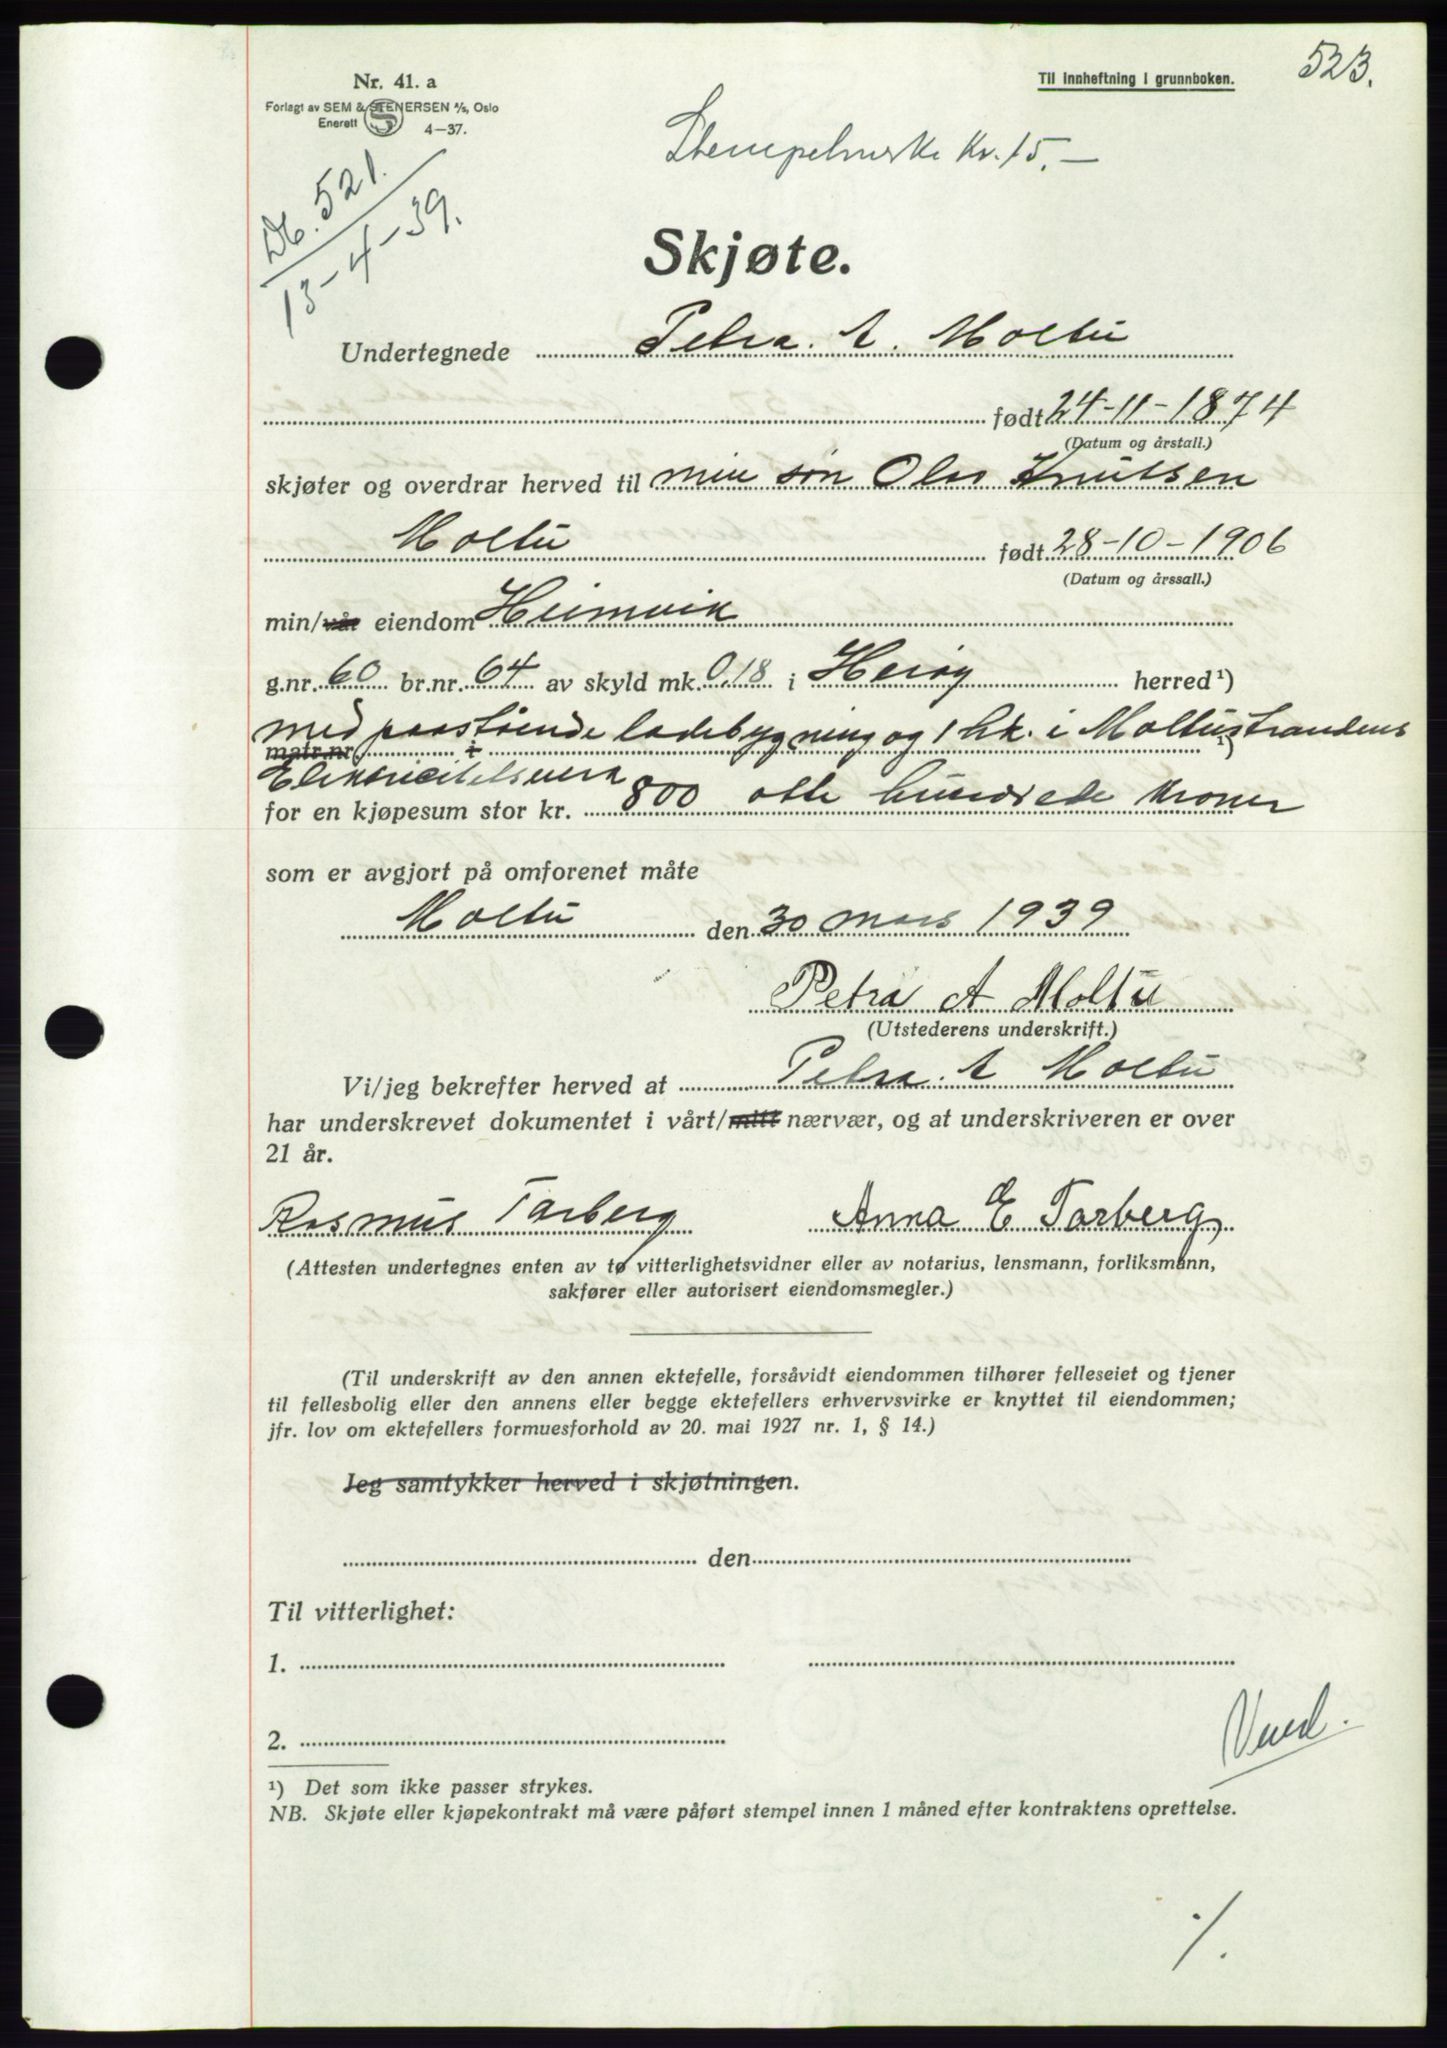 523.
Nr. 41. a
Til innheftning i grunnboken.
Forlagt av SEM & STENERSEN A/S, Oslo
Enerett S 4—37.
Stempelmerke Kr. 15.—
Db. 521.
13-4-39.
Skjøte.
Undertegnede Petra. A. Moltu
født 24-11-1874
(Datum og årstall.)
skjøter og overdrar herved til min søn Olav Knutsen
Moltu født 28-10-1906
(Datum og årssall.)
min/vår eiendom Heimvik
g.nr. 60 br.nr. 64 av skyld mk. 0,18 i Herøy herred ¹)
med paastående ladebygning og 1 hk. i Moltustrandens
matr.nr. i ¹)
Elektricitetsverk
for en kjøpesum stor kr. 800 otte hundrede kroner
som er avgjort på omforenet måte
Moltu den 30 mars 1939
Petra A Moltu
(Utstederens underskrift.)
Vi/jeg bekrefter herved at Petra. A Moltu
har underskrevet dokumentet i vårt/mitt nærvær, og at underskriveren er over
21 år.
Rasmus Tarberg Anna E Tarberg
(Attesten undertegnes enten av to vitterlighetsvidner eller av notarius, lensmann, forliksmann,
sakfører eller autorisert eiendomsmegler.)
(Til underskrift av den annen ektefelle, forsåvidt eiendommen tilhører felleseiet og tjener
til fellesbolig eller den annens eller begge ektefellers erhvervsvirke er knyttet til eiendommen;
jfr. lov om ektefellers formuesforhold av 20. mai 1927 nr. 1, § 14.)
Jeg samtykker herved i skjøtningen.
den
Til vitterlighet:
1.
Vend.
2.
¹) Det som ikke passer strykes.
NB. Skjøte eller kjøpekontrakt må være påført stempel innen 1 måned efter kontraktens oprettelse.